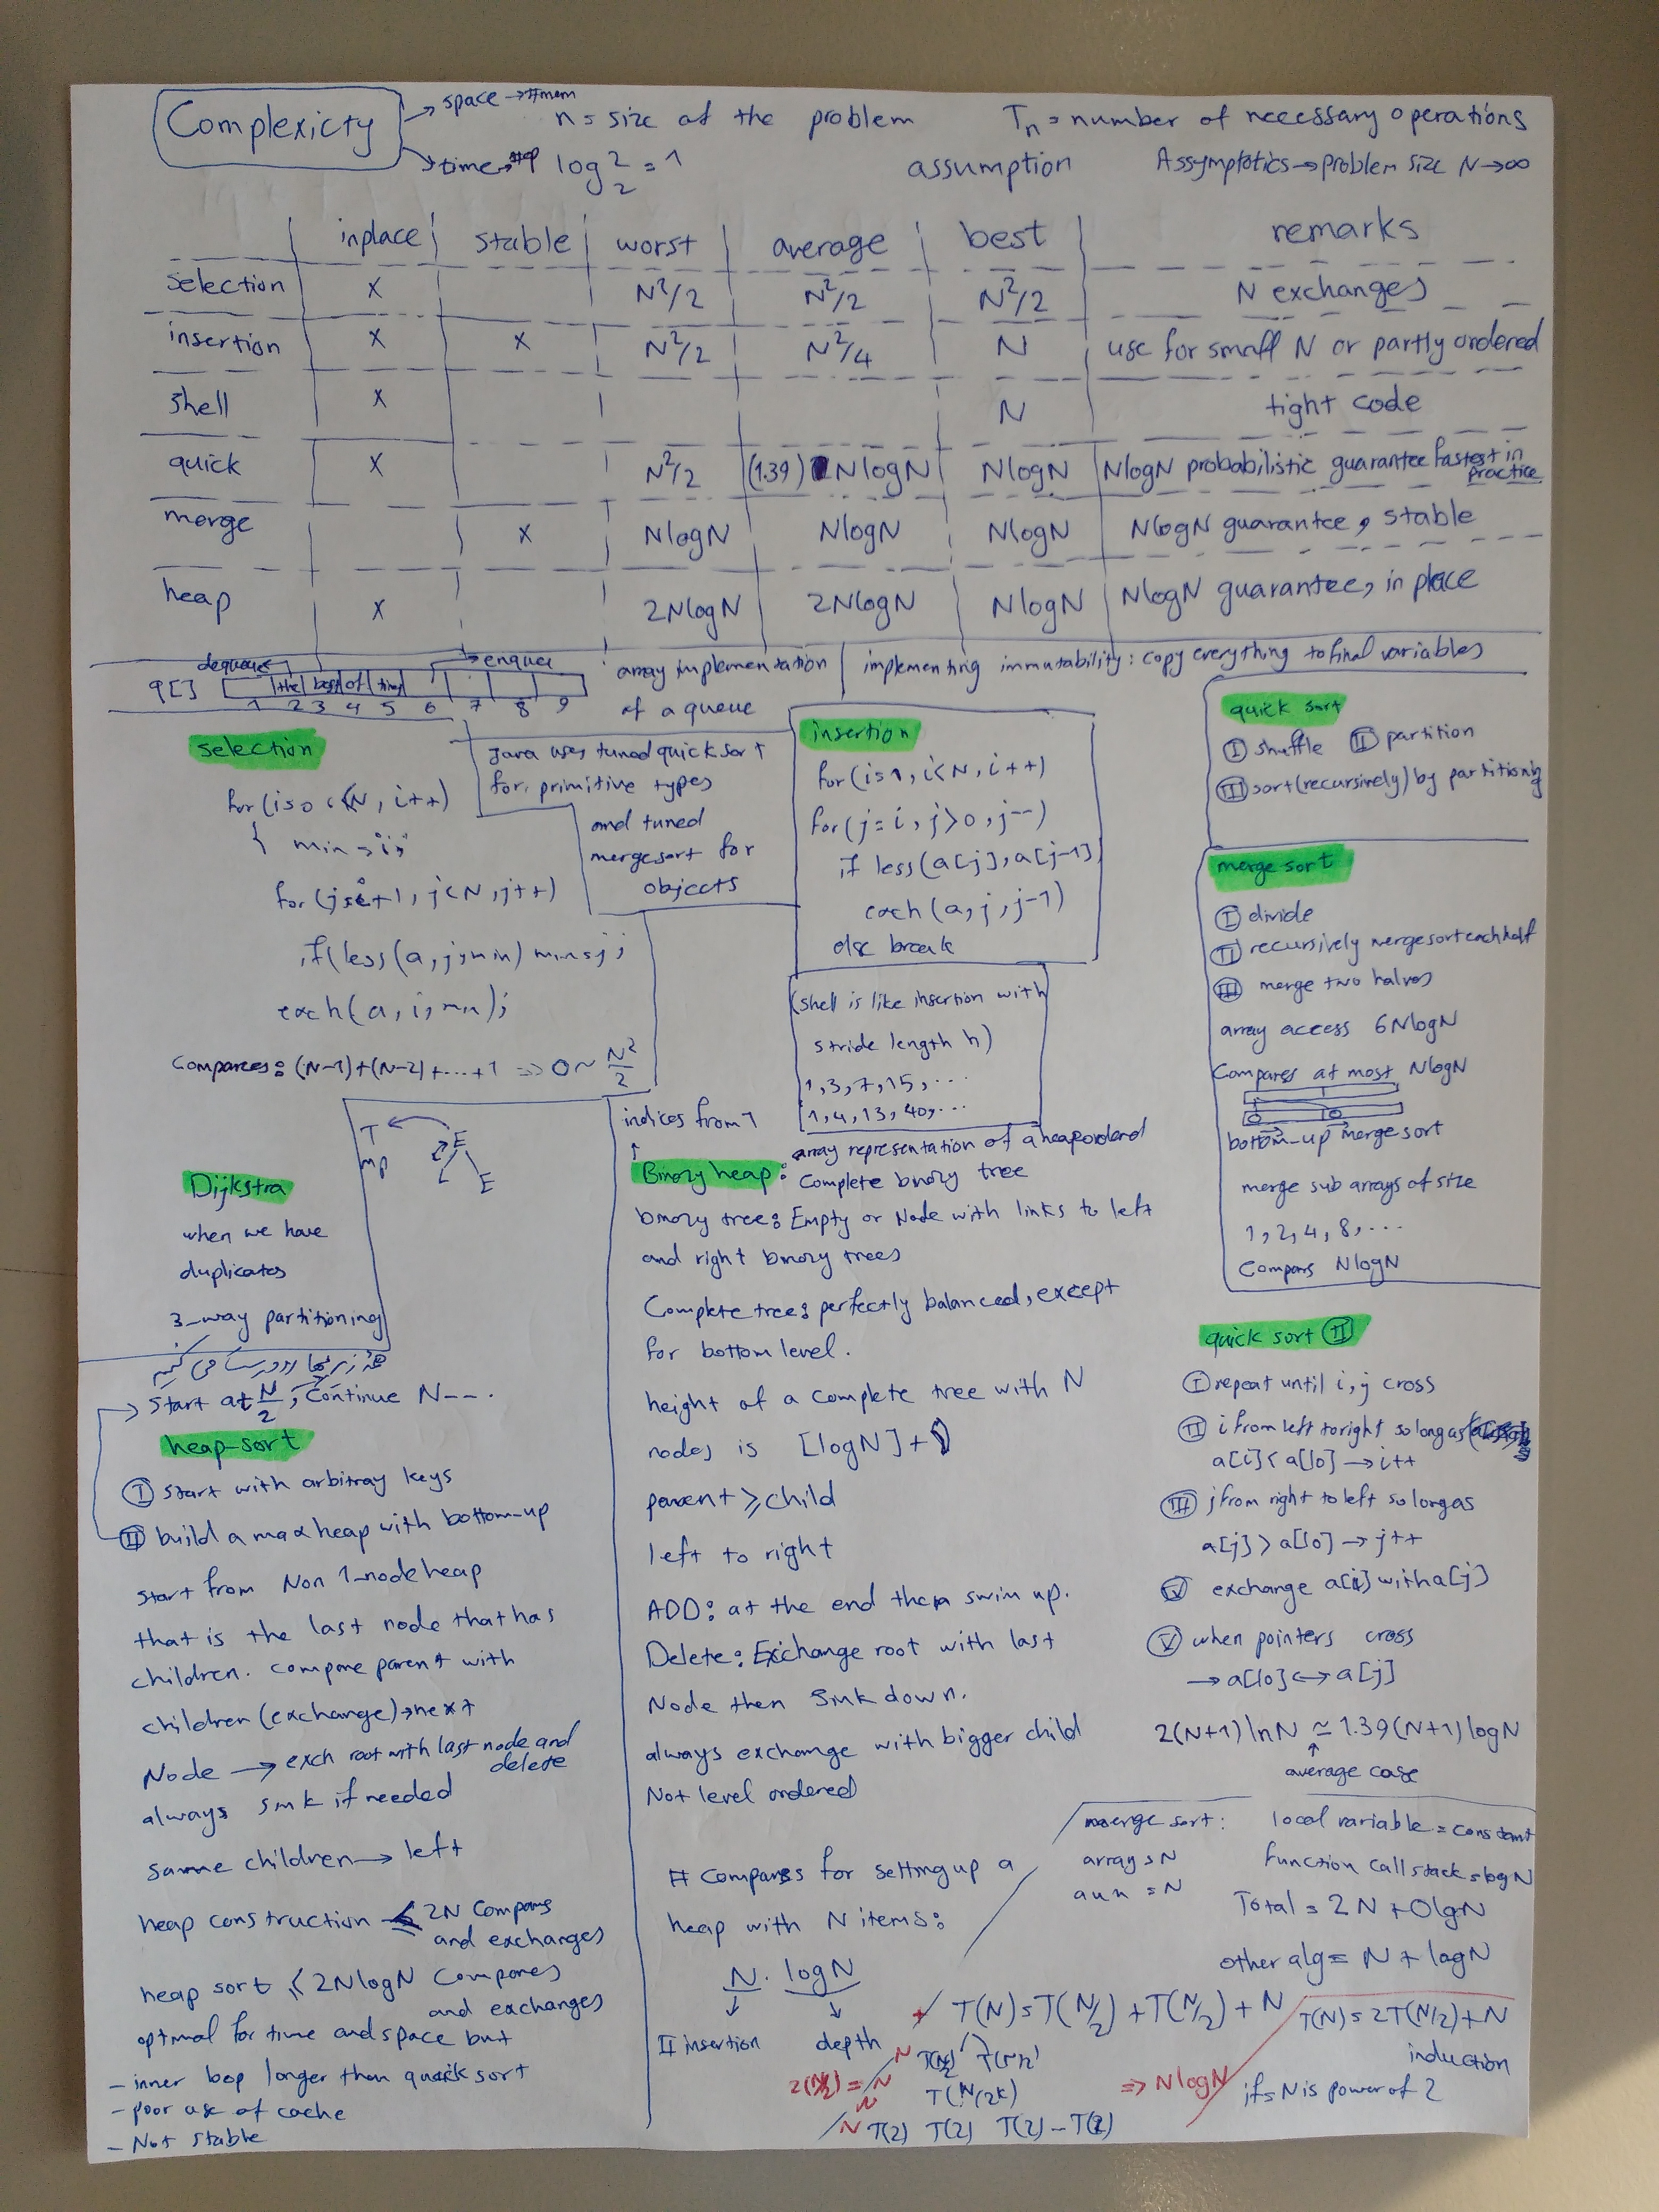 Complexicty
→ space → #mem
→ time → #op
n = size of the problem
Tn = number of necessary operations
log₂2 = 1
assumption
Assymptotics → problem size N → ∞
inplace stable worst average best remarks
selection X N²/2 N²/2 N²/2 N exchanges
insertion X X N²/2 N²/4 N use for small N or partly ordered
shell X N tight code
quick X N²/2 (1.39) NlogN NlogN NlogN probabilistic guarantee fastest in practice
merge X NlogN NlogN NlogN NlogN guarantee, stable
heap X 2NlogN 2NlogN NlogN NlogN guarantee, in place
dequeue enque
q[] the best of
1 2 3 4 5 6 7 8 9
array implementation
of a queue
implementing immutability: copy everything to final variables
selection
for (i=0 i<N, i++)
{ min = i;
for (j=i+1, j<N, j++)
if (less(a, j, min) min=j;
exch(a, i, min);
Compares: (N-1)+(N-2)+...+1 => O ~ N²/2
Java uses tuned quick sort
for, primitive types
and tuned
mergesort for
objects
insertion
for (i=1, i<N, i++)
for (j=i, j>0, j--)
if less(a[j], a[j-1]
exch (a, j, j-1)
else break
(shell is like insertion with
stride length h)
1, 3, 7, 15, ...
1, 4, 13, 40, ...
quick sort
I shuffle II partition
III sort (recursively) by partitioning
merge sort
I divide
II recursively mergesort each half
III merge two halves
array access 6NlogN
Compares at most NlogN
bottom-up merge sort
merge sub arrays of size
1, 2, 4, 8, ...
Compars NlogN
T ← E
mp L E
Dijkstra
when we have
duplicates
3-way partitioning
→ Start at N/2, Continue N--.
heap-sort
I start with arbitray keys
II build a max heap with bottom-up
start from Non 1-node heap
that is the last node that has
children. compare parent with
children (exchange) → next
Node → exch root with last node and
delete
always sink if needed
same children → left
heap construction ≤ 2N Compares
and exchanges
heap sort ≤ 2NlogN Compares
and exchanges
optimal for time and space but
- inner loop longer than quick sort
- poor use of cache
- Not stable
indices from 1
↑
Binary heap: array representation of a heap ordered
Complete binary tree
binary tree: Empty or Node with links to left
and right binary trees
Complete tree: perfectly balanced, except
for bottom level.
height of a complete tree with N
nodes is [logN]+1
parent ≥ child
left to right
ADD: at the end then swim up.
Delete: Exchange root with last
Node then sink down.
always exchange with bigger child
Not level ordered
# Compares for setting up a
heap with N items:
N. logN
↓ ↓
insertion depth
quick sort II
I repeat until i, j cross
II i from left to right so long as
a[i] < a[lo] → i++
III j from right to left so long as
a[j] > a[lo] → j++
IV exchange a[i] with a[j]
V when pointers cross
→ a[lo] ↔ a[j]
2(N+1) lnN ≃ 1.39(N+1) logN
↑
average case
merge sort:
array = N
aux = N
local variable = constant
function call stack = log N
Total = 2N + OlgN
other alg = N + logN
T(N) = T(N/2) + T(N/2) + N
N T(N/2)
2(N/2) = N
T(N/2k)
N T(2) T(2) T(2) - T(2)
=> NlogN
T(N) = 2T(N/2)+N
induction
if = N is power of 2